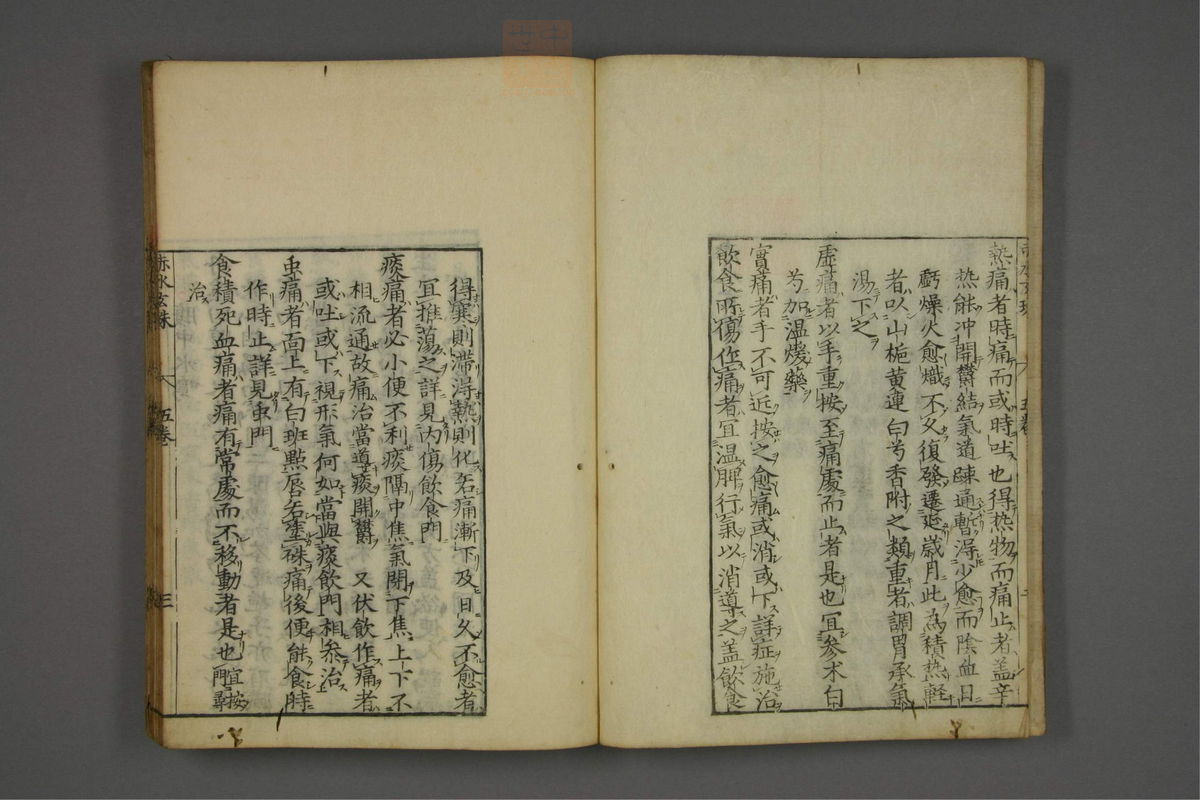 熱痛者時痛而或時吐也得热物而痛止者盖辛
热能冲開欝結氣道踈通暫淂少愈而陰血日
虧燥火愈熾不久復發遷延歳月此為積热軽
者以山栀黄連白芍香附之類重者調胃承氣
湯下之
虚痛者以手重按至痛處而止者是也宜參术白
芍加温煖藥
實痛者手不可近按之愈痛或消或下詳症施治
飲食所傷作痛者宜温脾行氣以消導之盖飲食
得寒則滞淂熱則化若痛漸下及日久不愈者
宜推蕩之詳見内傷飲食門
痰痛者必小便不利痰隔中焦氣閉下焦上下不
相流通故痛治當導痰開欝 又伏飲作痛者
或吐或下視形氣何如當與痰飲門相參治
虫痛者面上有白班點唇若塗硃痛後便能食時
作時止詳見虫門
食積死血痛者痛有常處而不移動者是也宜按門尋
治
赤水玄珠 五卷 三